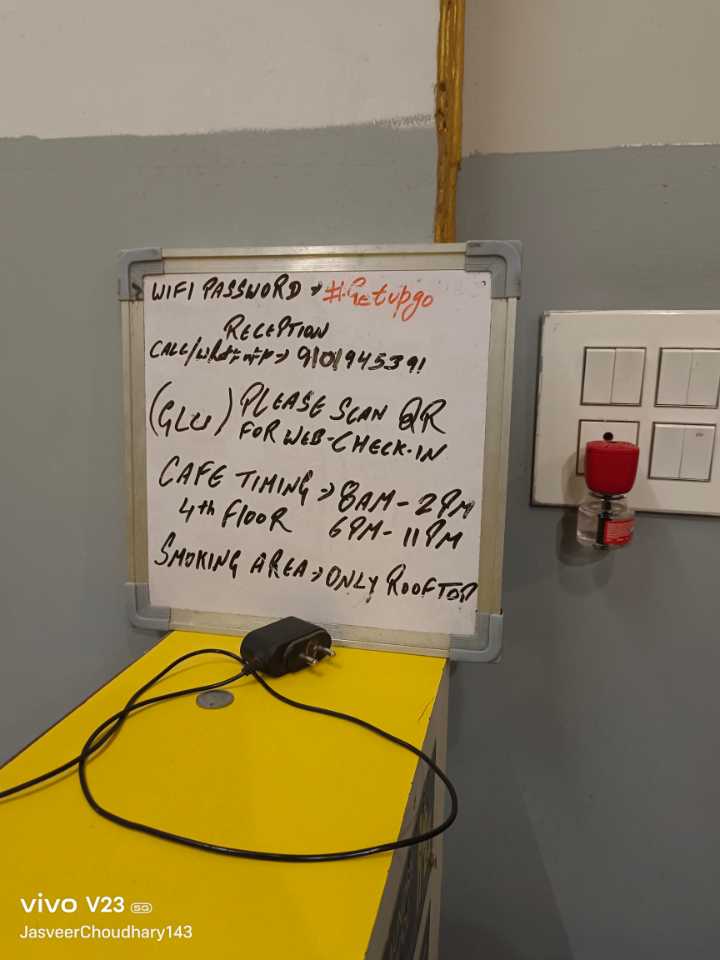 WIFI PASSWORD → #Getupgo
RECEPTION
CALL/Whatsapp → 9101945391
PLEASE SCAN QR
FOR WEB-CHECK-IN
CAFE TIMING → 8AM - 2PM
4th FlooR 6PM - 11PM
SMOKING AREA → ONLY ROOFTOP
vivo V23 5G
JasveerChoudhary143